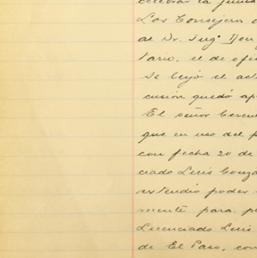 celebrar la junta
Los Consejeros
al Dr. Ing.º
tario, el de
Se leyó el act
cusión quedó ap
El señor Geren
que en uso del p
con fecha 20 de
ciado Luis Gonzá
extendió poder
mente para p
Licenciado Luis
de El Paso, con